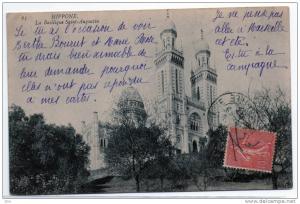 HIPPONE.
La Basilique Saint-Augustin
Si tu as l'occasion de voir
Berthe Bonnet et Marie
tu serais bien aimable de
leur demander pourquoi
elles n'ont pas répondu
à mes cartes.
Je ne suis pas
allée à Marseille
cet été.
Es-tu à la
campagne